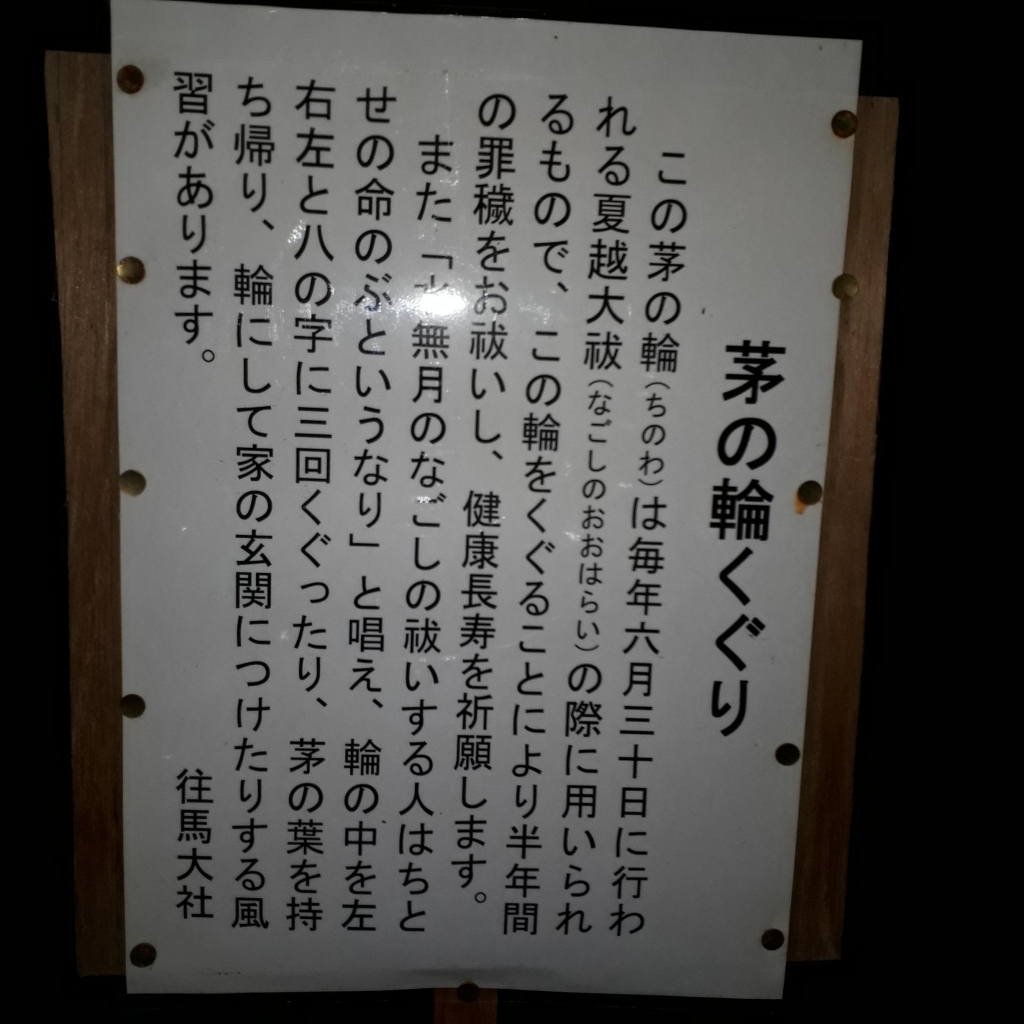 茅の輪くぐり
この茅の輪(ちのわ)は毎年六月三十日に行わ
れる夏越大祓(なごしのおおはらい)の際に用いられ
るもので、この輪をくぐることにより半年間
の罪穢をお祓いし、健康長寿を祈願します。
また「水無月のなごしの祓いする人はちと
せの命のぶというなり」と唱え、輪の中を左
右左と八の字に三回くぐったり、茅の葉を持
ち帰り、輪にして家の玄関につけたりする風
習があります。
往馬大社